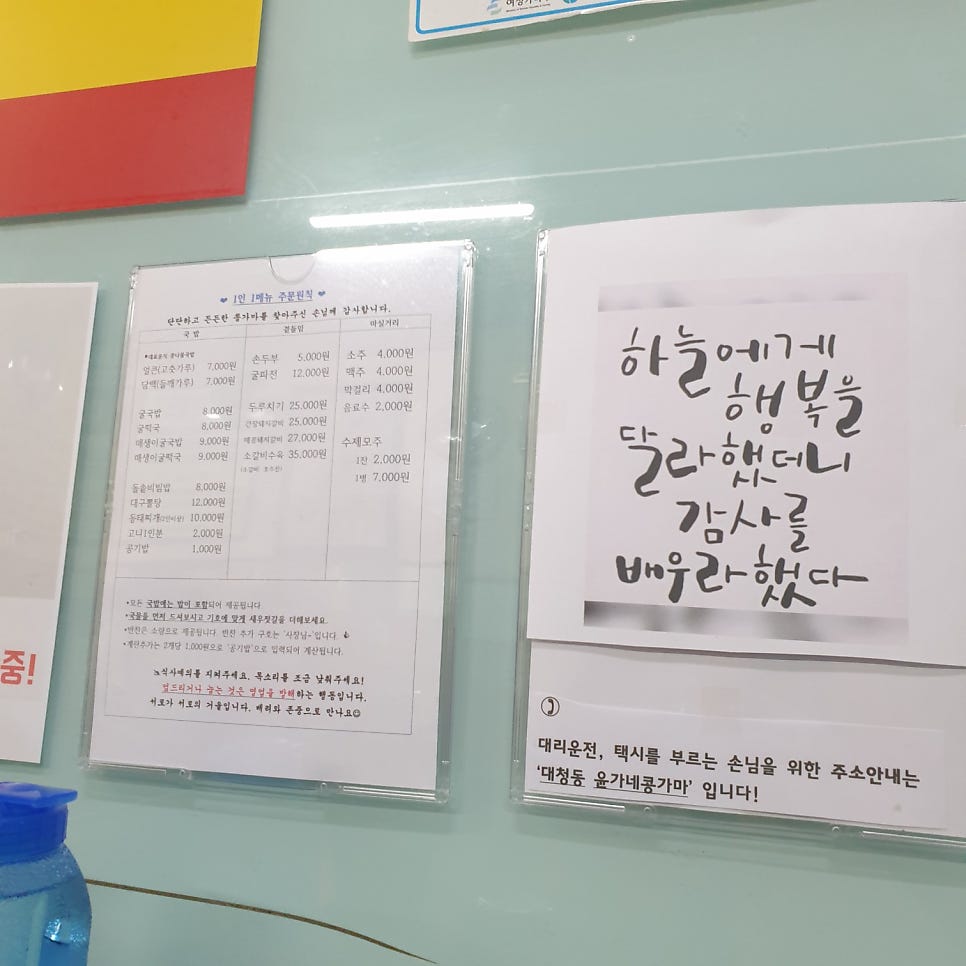 여성가족부
중!
1인 1메뉴 주문원칙
단단하고 든든한 콩가마를 찾아주신 손님께 감사합니다.
국 밥
*대표음식 콩나물국밥
얼큰(고춧가루) 7,000원
담백(들깨가루) 7,000원
굴국밥 8,000원
굴떡국 8,000원
매생이굴국밥 9,000원
매생이굴떡국 9,000원
돌솥비빔밥 8,000원
대구뽈탕 12,000원
동태찌개(2인이상) 10,000원
고니1인분 2,000원
공기밥 1,000원
곁들임
손두부 5,000원
굴파전 12,000원
두루치기 25,000원
간장돼지갈비 25,000원
매콤돼지갈비 27,000원
소갈비수육 35,000원
(소갈비 호주산)
마실거리
소주 4,000원
맥주 4,000원
막걸리 4,000원
음료수 2,000원
수제모주
1잔 2,000원
1병 7,000원
*모든 국밥에는 밥이 포함되어 제공됩니다.
*국물을 먼저 드셔보시고 기호에 맞게 새우젓갈을 더해보세요.
*반찬은 소량으로 제공됩니다. 반찬 추가 구호는 '사장님~'입니다.
*계란추가는 2개당 1,000원으로 '공기밥'으로 입력되어 계산됩니다.
식사예의를 지켜주세요. 목소리를 조금 낮춰주세요!
엎드리거나 눕는 것은 영업을 방해하는 행동입니다.
서로가 서로의 거울입니다. 배려와 존중으로 만나요☺
하늘에게
행복을
달라했더니
감사를
배우라했다
대리운전, 택시를 부르는 손님을 위한 주소안내는
'대청동 윤가네콩가마' 입니다!